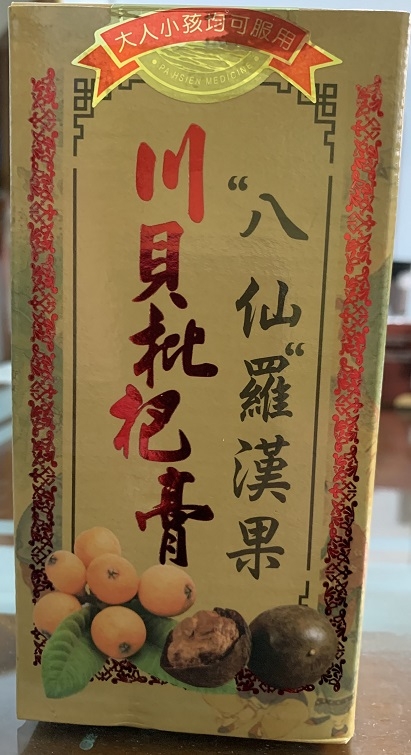 大人小孩均可服用
PA HSIEN MEDICINE
“八仙“羅漢果
川貝枇杷膏